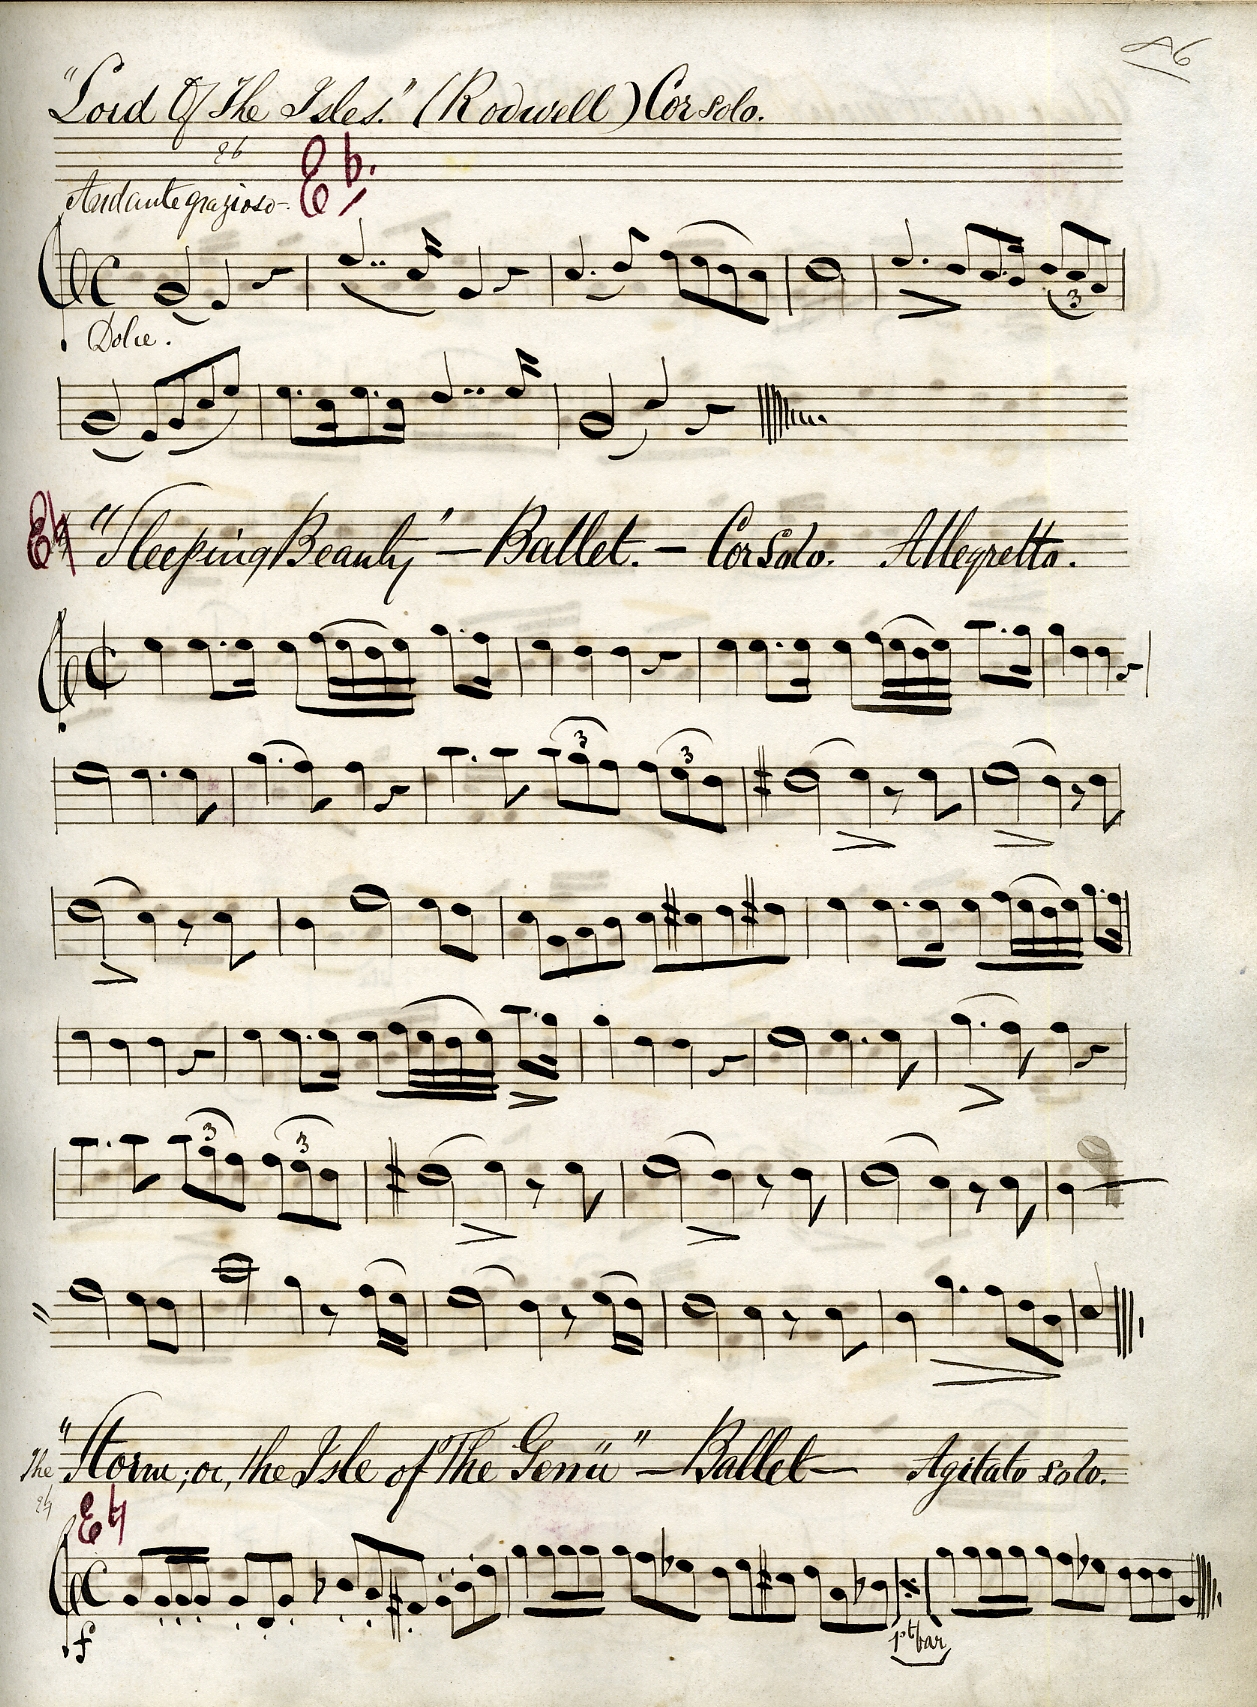 46
"Lord Of The Isles." (Rodwell) Cor solo.
Eb
Eb.
Andante grazioso-
Dolce.
3
E♮ "Sleeping Beauty" — Ballet. — Cor Solo. Allegretto.
3 3
3 3
The "Storm; or, the Isle of The Genii" — Ballet — Agitato solo.
E♮
E♮
f
1st bar